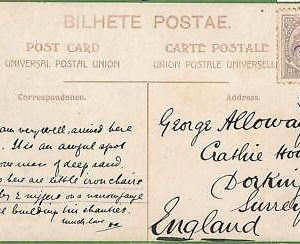 BILHETE POSTAE.
POST CARD
CARTE POSTALE
UNIVERSAL POSTAL UNION
UNION POSTALE UNIVERSELLE
Correspondence.
Address.
am very well, arrived here
It is an awful spot
one mass of deep sand
here are little iron chairs
by 2 niggers on a narrow gauge
building his shanties.
much love
George Alloway
Crathie Ho
Dorkin
Surrey
England